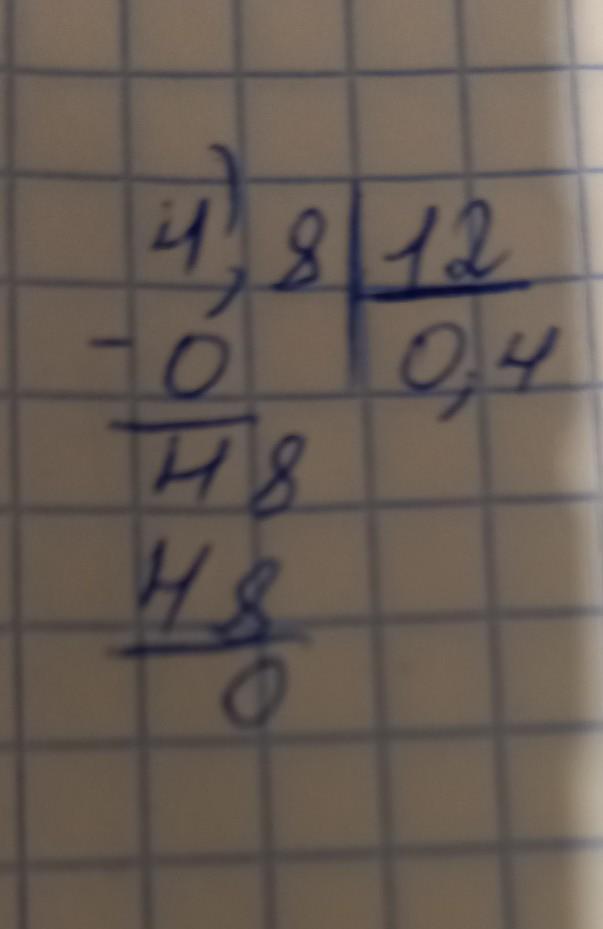 4,8 | 12
- 0 | 0,4
48
48
0